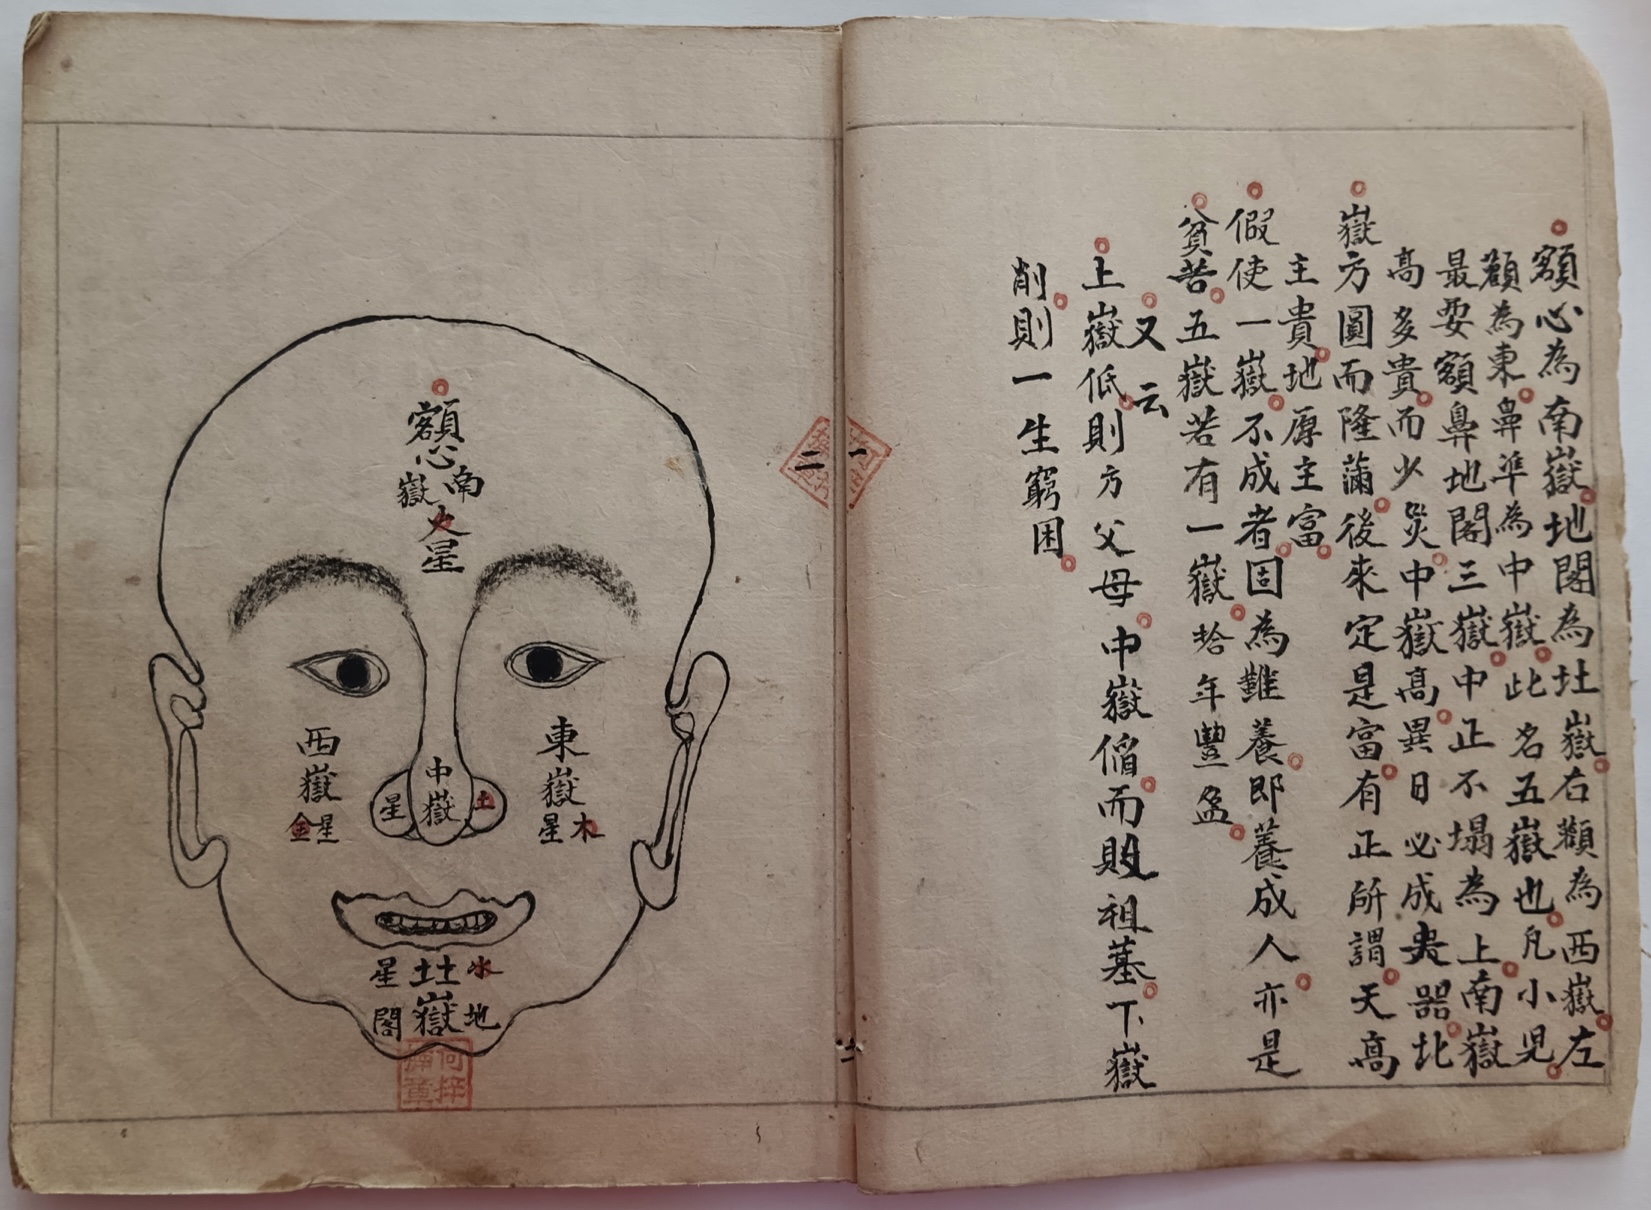 額心為南嶽地閣為北嶽右顴為西嶽左
顴為東鼻準為中嶽此名五嶽也凡小児
最要額鼻地閣三嶽中正不塌為上南嶽
高多貴而少災中嶽高異日必成貴器北
嶽方圓而隆滿後來定是富有正所謂天高
主貴地厚主富
假使一嶽不成者固為難養即養成人亦是
貧苦五嶽若有一嶽拾年豐盈
又云
上嶽低則方父母中嶽偏而敗祖墓下嶽
削則一生窮困
一
二
額心
南嶽
火星
東嶽
木星
中嶽
土星
西嶽
金星
水星
北嶽
地閣